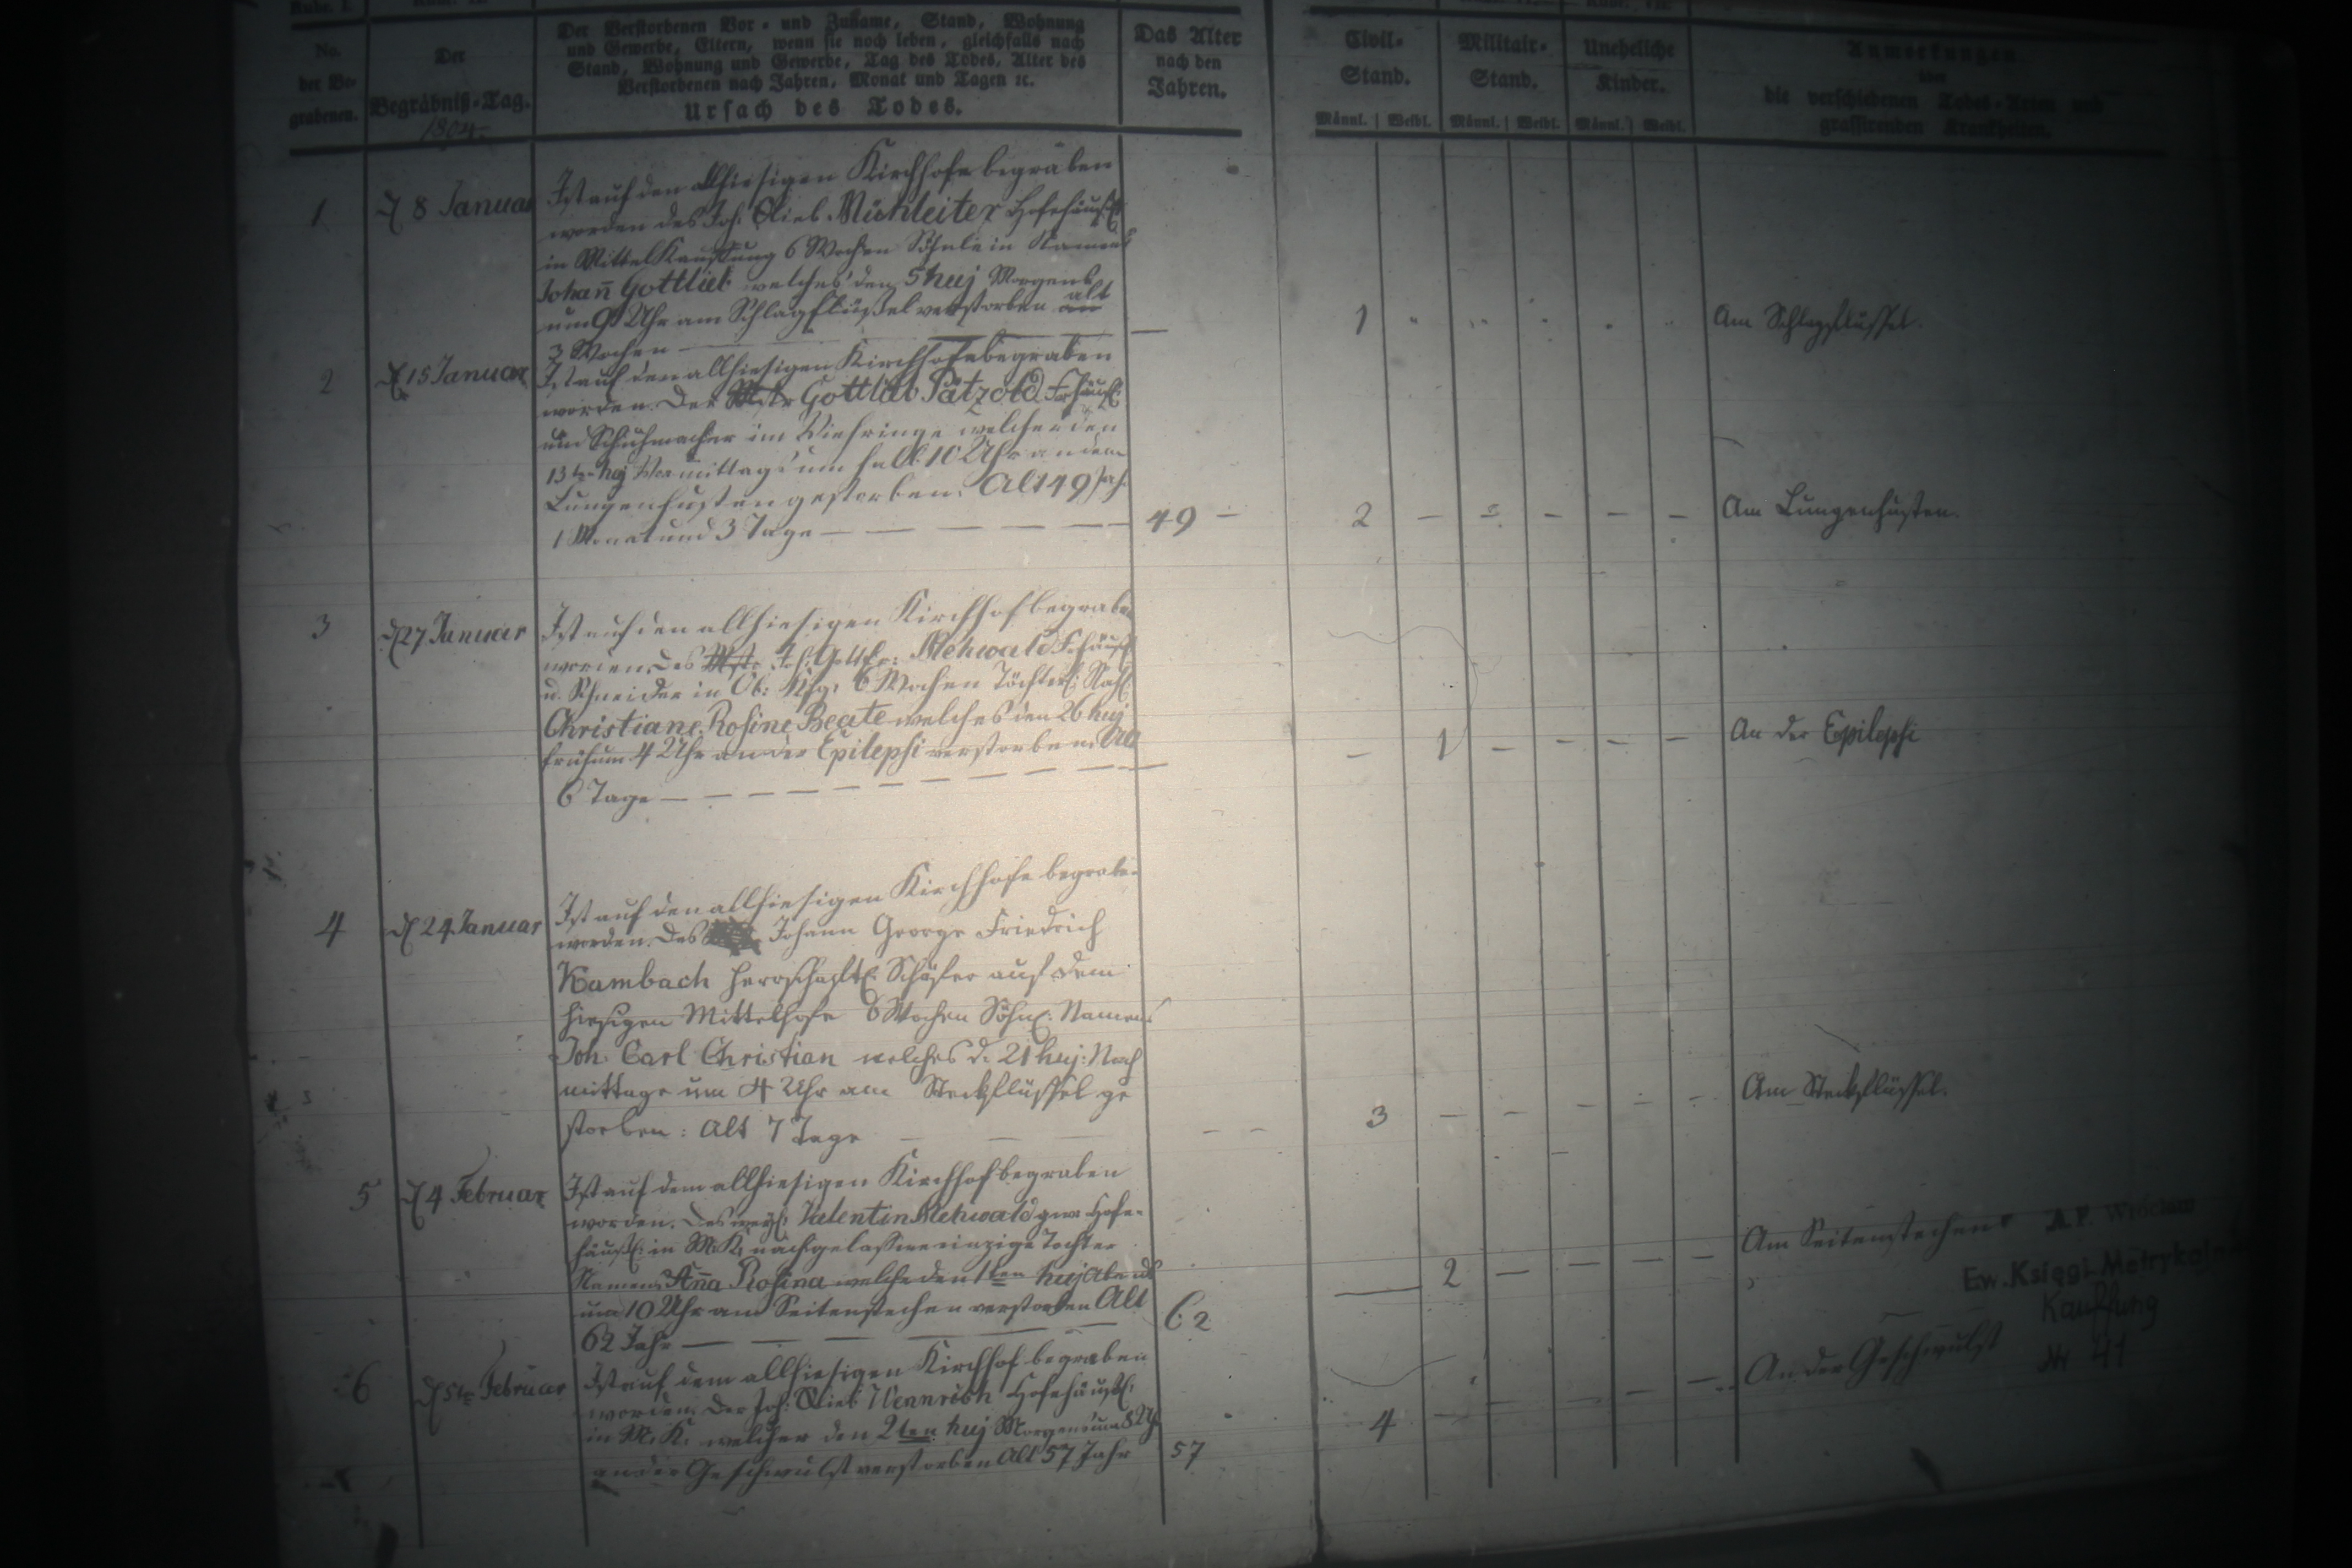 No.
der Be-
grabenen.
Der
Begräbniß-Tag.
1804.
Der Verstorbenen Vor- und Zuname, Stand, Wohnung
und Gewerbe, Eltern, wenn sie noch leben, gleichfalls nach
Stand, Wohnung und Gewerbe, Tag des Todes, Alter des
Verstorbenen nach Jahren, Monat und Tagen ꝛc.
Ursach des Todes.
Das Alter
nach den
Jahren.
Civil-
Stand.
Militair-
Stand.
Uneheliche
Kinder.
Anmerkungen
über
die verschiedenen Todes-Arten und
grassirenden Krankheiten.
Männl. Weibl. Männl. Weibl. Männl. Weibl.
1
d 8 Januar
Ist auf den allhiesigen Kirchhofe begraben
worden des Joh: Glieb Mühleiter Hofehäusl:
in Mittel Kauffung 6 Wochen Söhnlein Namens
Johañ Gottlieb welches den 5 huj Morgens
um 9 Uhr am Schlagflüßel verstorben alt
3 Wochen —
1
Am Schlagflüssel.
2
d 15 Januar
Ist auf den allhiesigen Kirchhofe begraben
worden. Der Mstr Gottlieb Pätzold Frhäusl:
und Schuhmacher im Viehringe welcher den
13ten huj Vormittags um halb 10 Uhr an dem
Lungenhusten gestorben. Alt 49 Jah:
1 Monat und 3 Tage — — — — —
49 —
2 — — — — —
Am Lungenhusten.
3
d 27 Januar
Ist auf den allhiesigen Kirchhof begraben
worden, des Mstr Joh: Gottfr: Rehwald Frhäusl
u. Schneider in Ob: Kfg: 6 Wochen Töchterl: Nah:
Christiane Rosine Beate welches den 26 huj
früh um 4 Uhr an der Epilepsi verstorben. Alt
6 Tage — — — — — — —
— 1 — — — —
An der Epilepsi
4
d 24 Januar
Ist auf den allhiesigen Kirchhofe begraben
worden. Des Johann George Friedrich
Kambach herrschaftl: Schäfer auf dem
hiesigen Mittelhofe 6 Wochen Söhnl: Namens
Joh: Carl Christian welches d. 21 huj: Nach
mittags um 4 Uhr am Steckflüssel ge
storben: Alt 7 Tage — — —
— —
3 — — — — —
Am Steckflüssel.
5
d 4 Februar
Ist auf dem allhiesigen Kirchhof begraben
worden. Des weyl: Valentin Rehwald gew: Hofe-
häusl: in M.K. nachgelassene einzige Tochter
Namens Aña Rosina welche den 1ten huj Abends
um 10 Uhr am Seitenstechen verstorben Alt
62 Jahr — — — — —
62
— 2 — — — —
Am Seitenstechen
A. P. Wrocław
Ew. Księgi Metrykalne
Kauffung
Nr 41
6
d 5te Februar
Ist auf dem allhiesigen Kirchhof begraben
worden. Der Joh: Glieb Hennrich Hofehäusl:
in M. K. welcher den 2ten huj Morgens um 8 Uhr
an der Geschwulst verstorben Alt 57 Jahr
57
4 — — — — —
An der Geschwulst